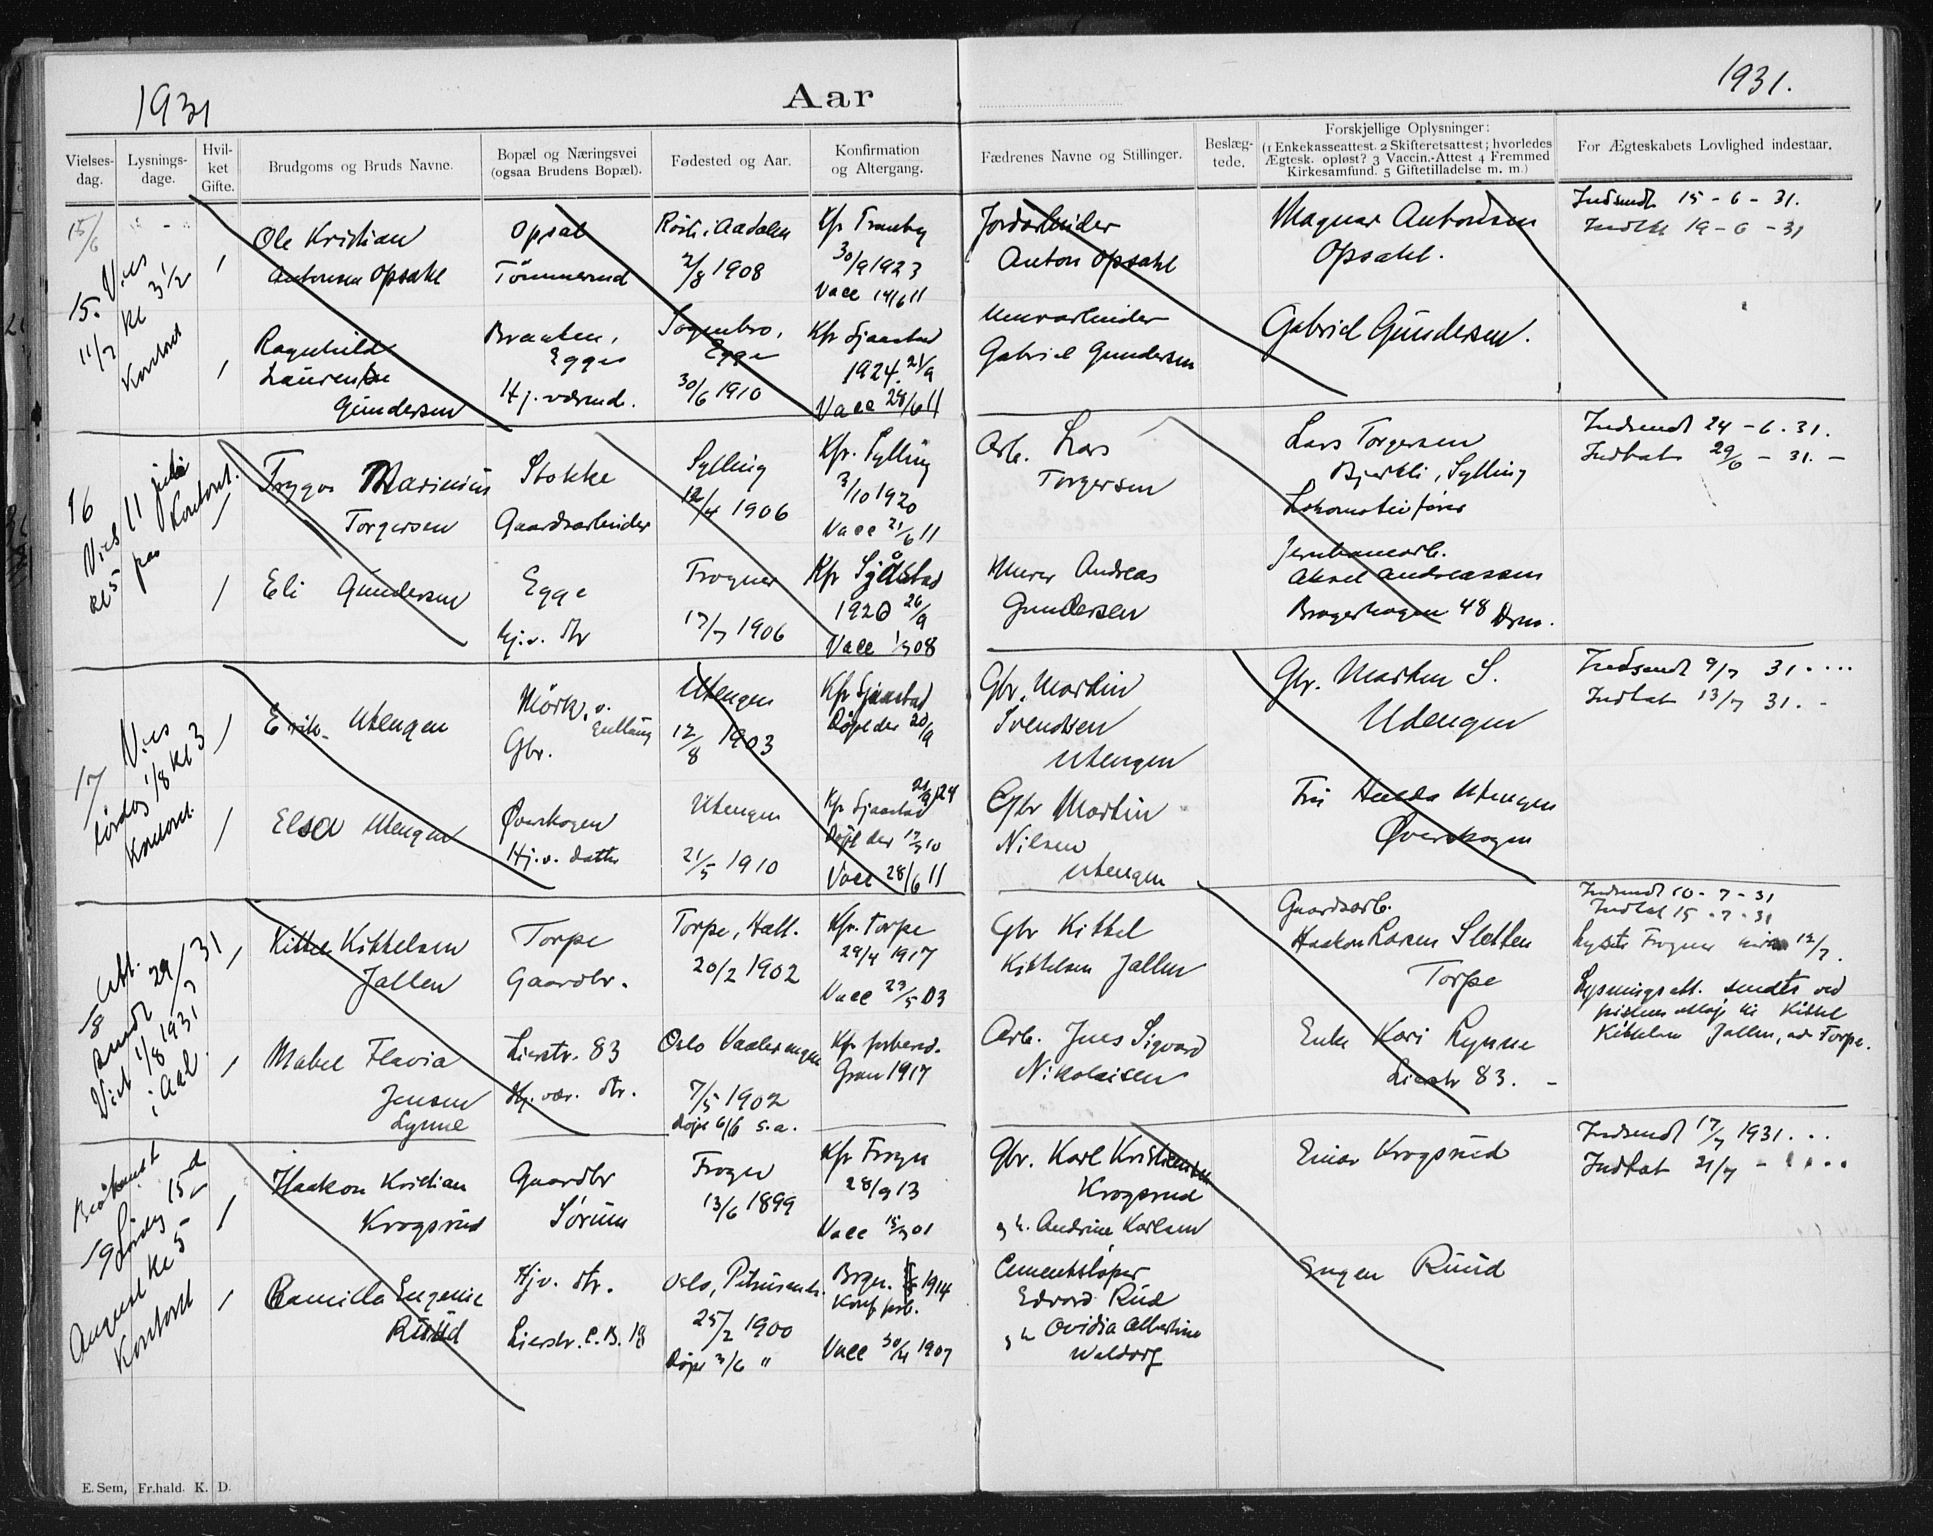 1931
Aar
1931.
Vielses-
dag.
Lysnings-
dage.
Hvil-
ket
Gifte.
Brudgoms og Bruds Navne.
Bopæl og Næringsvei
(ogsaa Brudens Bopæl).
Fødested og Aar.
Konfirmation
og Altergang.
Fædrenes Navne og Stillinger.
Beslæg-
tede.
Forskjellige Oplysninger:
(1 Enkekasseattest. 2 Skifteretsattest; hvorledes
Ægtesk. opløst? 3 Vaccin.-Attest 4 Fremmed
Kirkesamfund. 5 Giftetilladelse m. m.)
For Ægteskabets Lovlighed indestaar.
15/6
15.
Vies
11/7 kl 3 1/2
Kontoret
Ole Kristian
Antonsen Opsahl
Opsal
Tömmermd
2/8 1908
Kfr Tranby
30/9 1923
Vacc 14/6 11
Jordarbeider
Anton Opsahl
Magnar Antonsen
Opsahl.
Indsendt 15-6-31.
19-6-31
Ragnhild
Laurentse
Gundersen
Braaten,
Egge
Hj. værende.
Egge
30/6 1910
Kfr Sjaastad
1924. 21/9
Vacc 28/6 11
Murarbeider
Gabriel Gundersen
Gabriel Gundersen.
16
Viet 11 juli
kl 5 paa Kontoret.
Trygve Marinius
Torgersen
Stokke
Gaardsarbeider
Sylling
12/4 1906
Kfr. Sylling
3/10 1920
Vacc 21/6 11
Arb. Lars
Torgersen
Lars Torgersen
Bjerkli, Sylling
Lokomotivfører
Indsendt 24-6.31.
Indtat 29/6 - 31. -
Eli Gundersen
Egge
hj. v. dtr
Frogner
17/7 1906
Kfr Sjåstad
1920 26/9
Vacc 1908
Murer Andreas
Gundersen
Jernbanearb.
Aksel Andreassen
Bragerhagen 48 Drm.
17
Vies
lørdag 1/8 kl 3
Kontoret.
Erik Utengen
Mörk, v.
Gbr.
Utengen
12/8 1903
Kfr Sjaastad
Döpt der 20/9
Gbr. Martin
Svendsen
Utengen
Gbr. Martin S.
Udengen
Indsendt 9/7 31....
Indtat 13/7 31. -
Elsa Utengen
Øverskogen
Hj. v. datter
Utengen
21/5 1910
Kfr Sjaastad
Döpt der 17/7 10
Vacc 28/6 11
Gbr Martin
Nilsen
Utengen
Fru Hulda Utengen
Øverskogen
18
Att.
sendt 29/7 31
Viet 1/8 1931
i Aal.
Kittel Kittelsen
Jallen
Torpe
Gaardbr.
Torpe, Hall.
20/2 1902
Kfr. Torpe
29/4 1917
Vacc 23/5 03
Gbr Kittel
Kittelsen Jallen
Gaardsarb.
Haakon Larsen Sletten
Torpe
Indsendt 10-7-31
Indtat 15-7-31
Lysningsatt. sendtes ved
Kittelsen Jallen, ad Torpe.
Mabel Flavia
Jensen
Lynne
Lierstr. 83
Hj. vær. dtr.
Oslo Vaalerengen
7/5 1902
Döpt 6/6 s.a.
Kfr forbered.
Gran 1917
Arb. Jens Sigvard
Nikolaisen
Enke Kari Lynne
Lierstr 83. -
19
Lördag 15de
August kl 5
Kontoret
Haakon Kristian
Krogsrud
Gaardbr
Sørum
Frogn
13/6 1899
Kfr Frogn
28/9 13
Vacc 15/7 01
Gbr. Karl Kristiansen
Krogsrud
g h. Andrine Karlsen
Einar Krogsrud
Indsendt 17/7 1931...
Indtat 21/7 - ....
Camilla Eugenie
Ruud
Hjv. dtr.
Lierstr. C.B. 18
Oslo, Petrusmh.
25/2 1900
Döpt 3/6 "
Brgn. 1914
Konf forb.
Vacc 30/4 1907
Cementstøper
Edvard Rud
g h Ovidia Albertine
Waldorf
Eugen Ruud
E. Sem, Fr.hald. K. D.